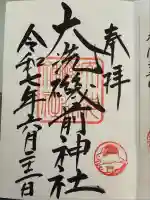 奉拝
大洗磯前神社
令和七年六月二十一日